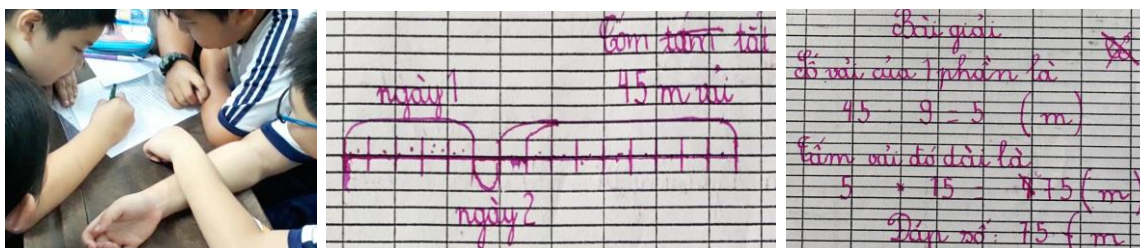 Tóm tắt
ngày 1 45 m vải
ngày 2
Bài giải
Số vải của 1 phần là
45 9 = 5 (m)
Tấm vải đó dài là
5 • 15 = 75 (m)
Đáp số: 75 ( m